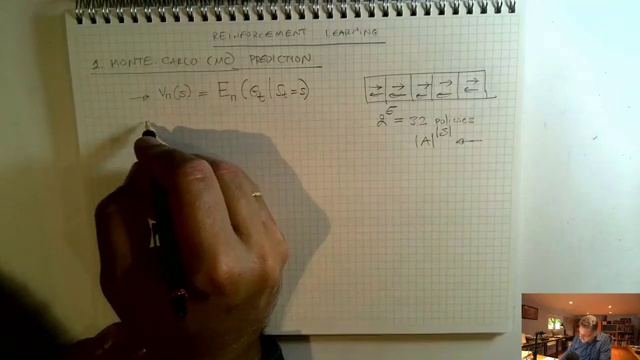 REINFORCEMENT LEARNING
1. MONTE-CARLO (MC) PREDICTION
→ V_π(s) = E_π(G_t | S_t = s)
2^5 = 32 policies
|A|^|S| ←